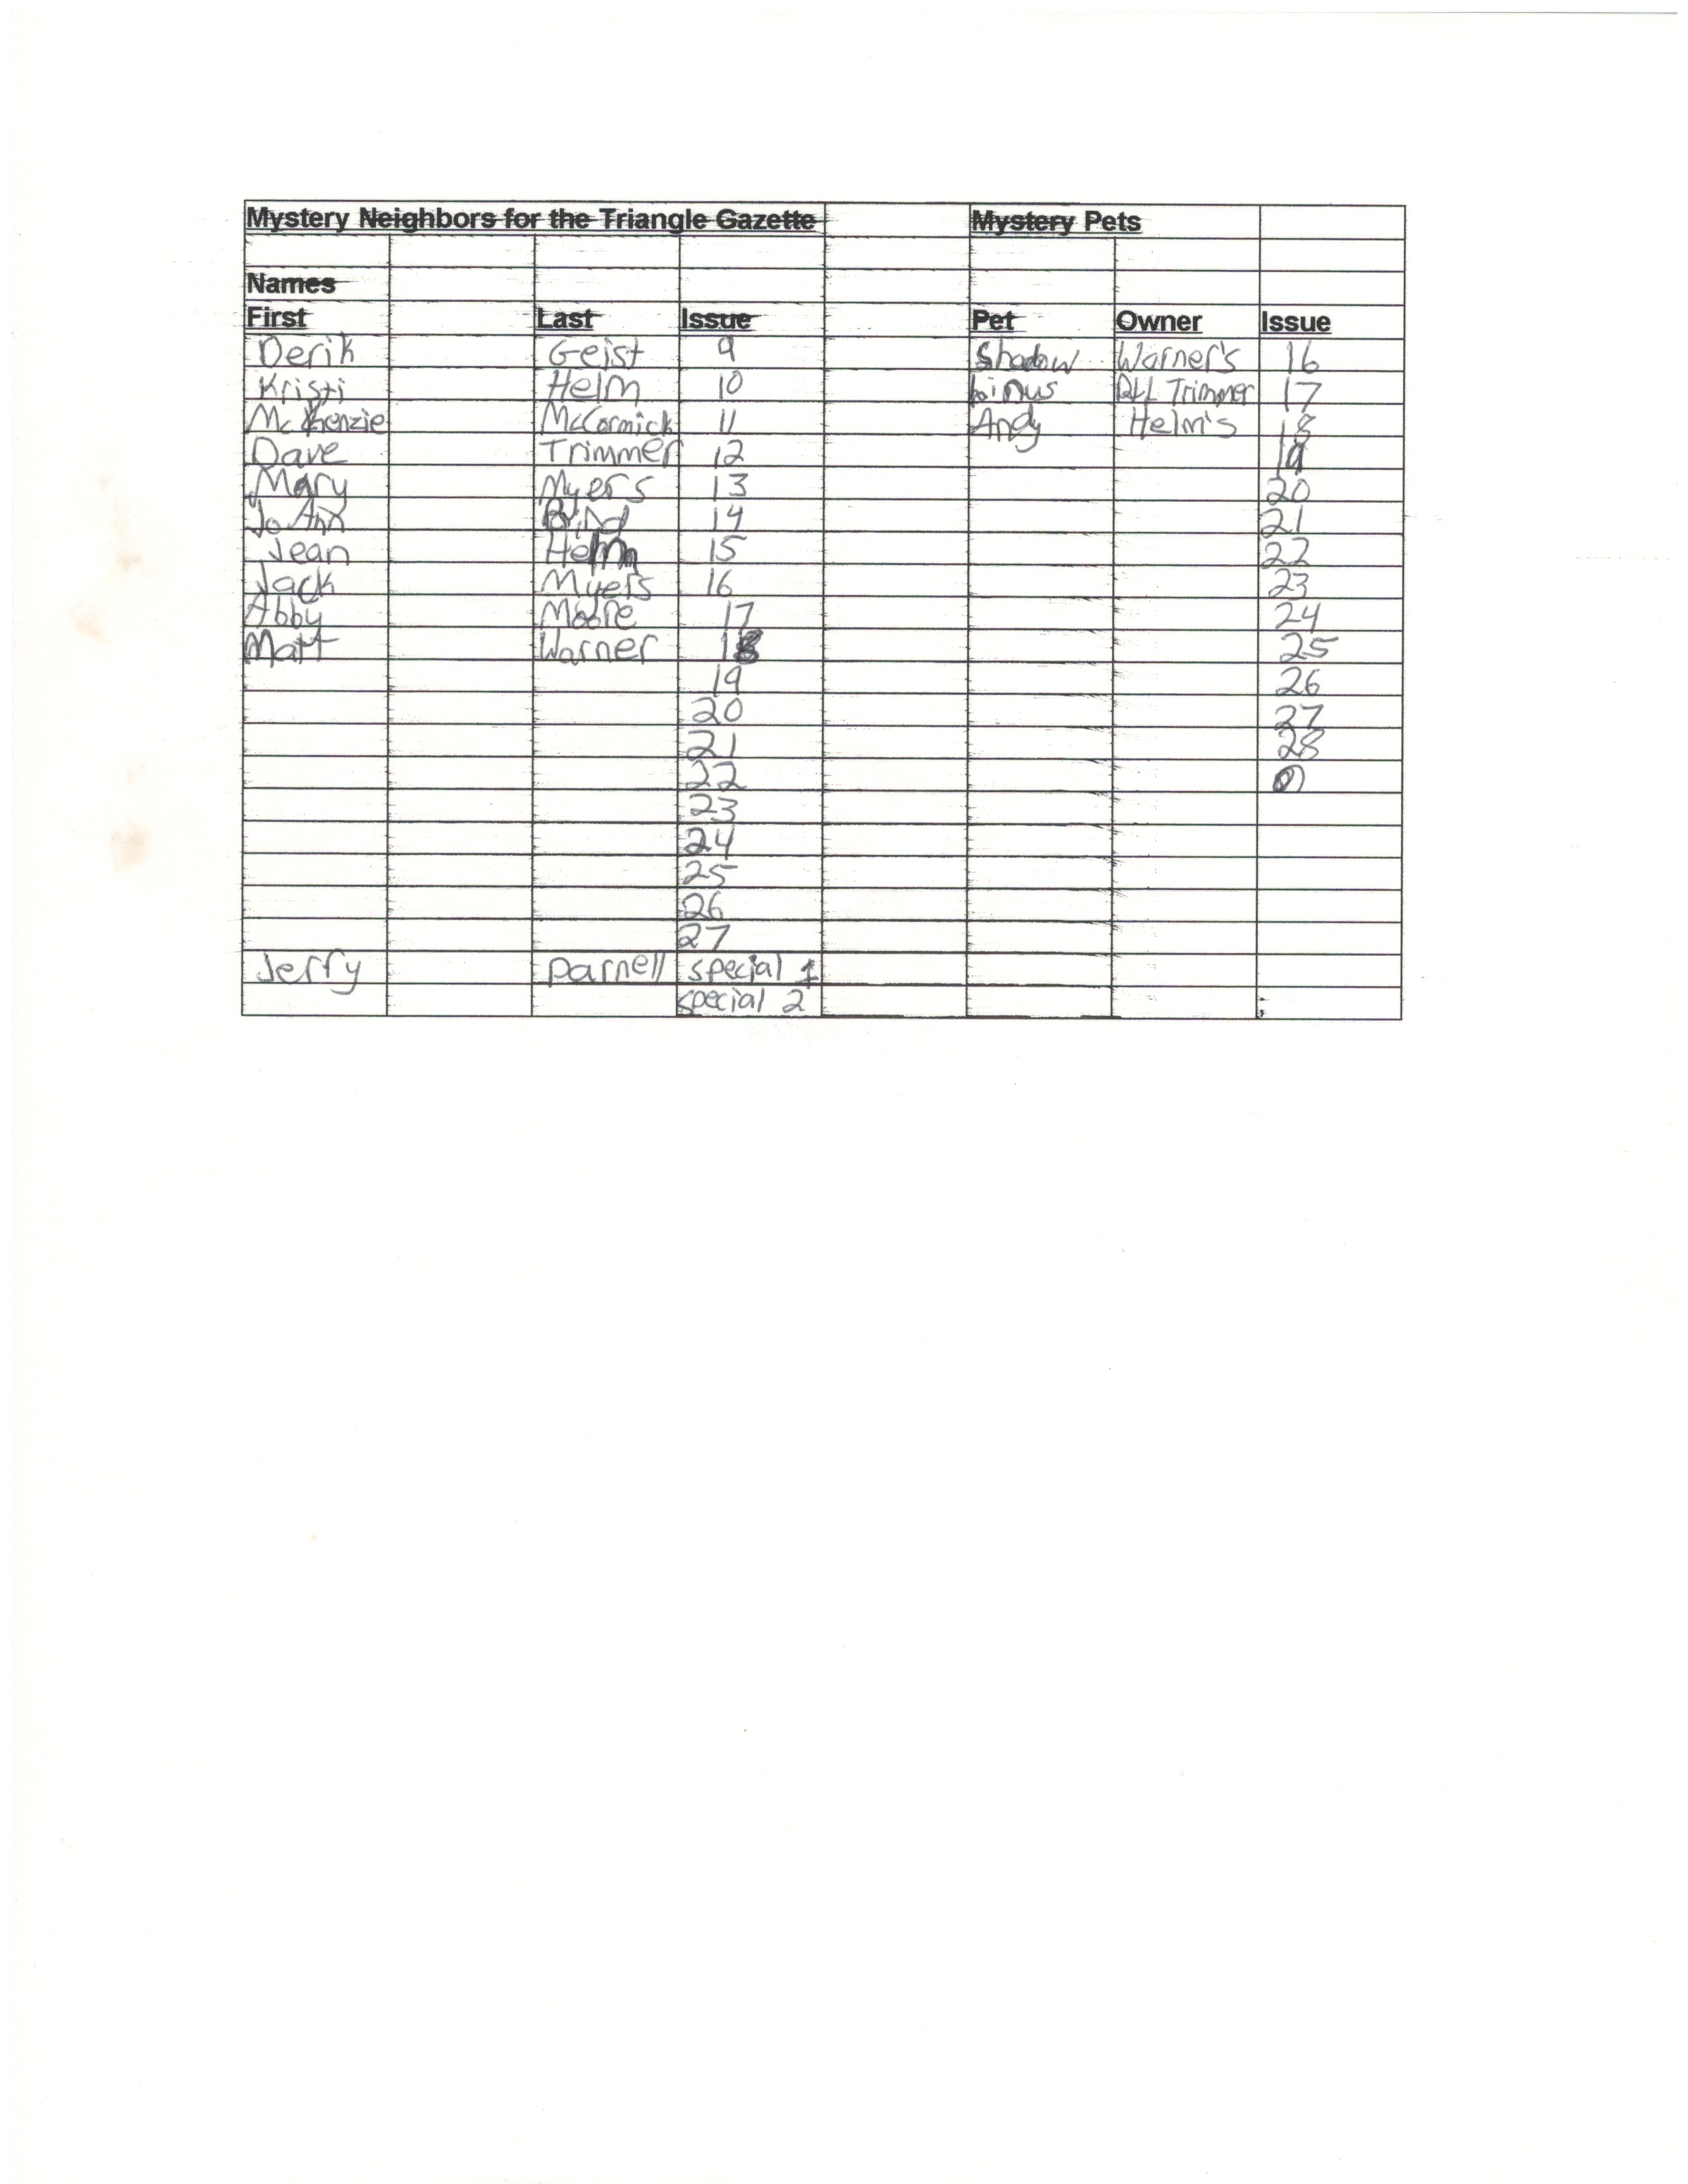 Mystery Neighbors for the Triangle Gazette Mystery Pets
Names
First Last Issue Pet Owner Issue
Derik Geist 9 Shadow Warner's 16
Kristi Helm 10 Linus Trimmer 17
McKenzie McCormick 11 Andy Helm's 18
Dave Trimmer 12 19
Mary Myers 13 20
Jo Ann 14 21
Jean Helm 15 22
Jack Myers 16 23
Abby Moore 17 24
Matt Warner 18 25
19 26
20 27
21 28
22
23
24
25
26
27
Jerry Parnell special 1
special 2